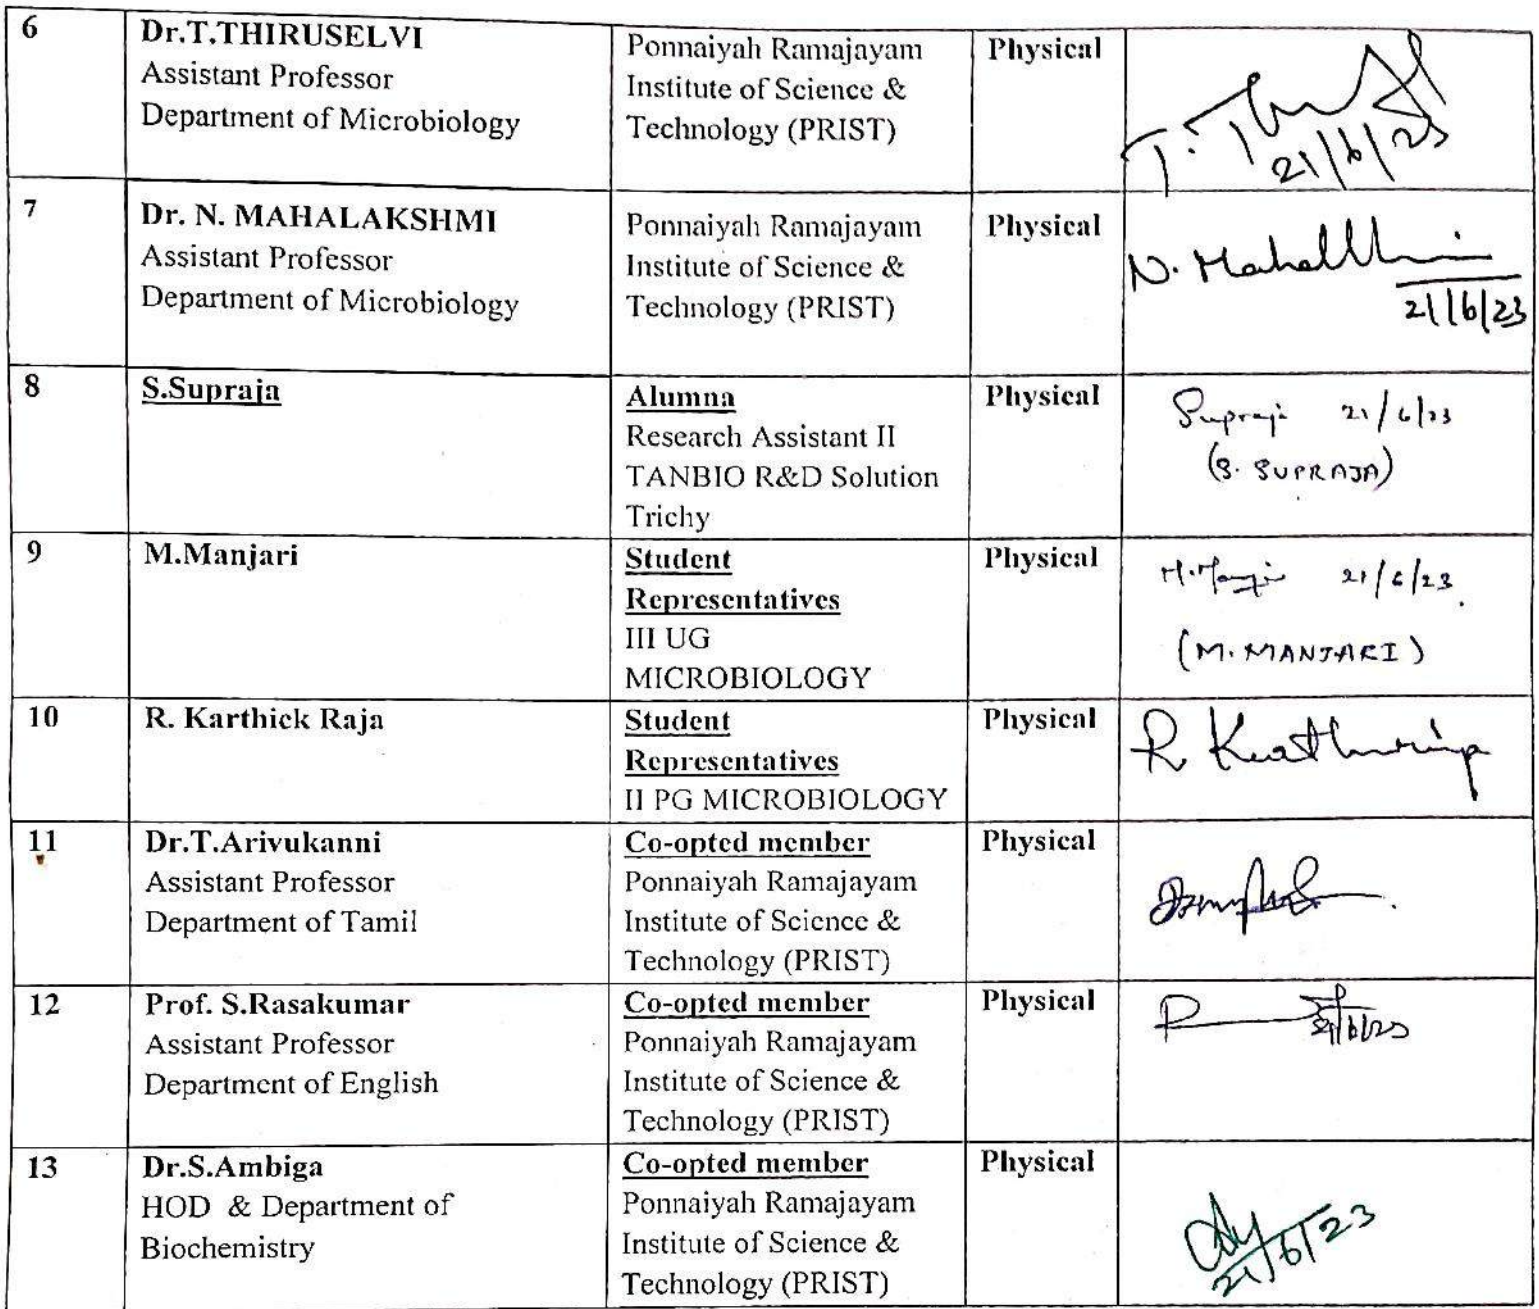 6
Dr.T.THIRUSELVI
Assistant Professor
Department of Microbiology
Ponnaiyah Ramajayam
Institute of Science &
Technology (PRIST)
Physical
21/6/23
7
Dr. N. MAHALAKSHMI
Assistant Professor
Department of Microbiology
Ponnaiyah Ramajayam
Institute of Science &
Technology (PRIST)
Physical
21/6/23
8
S.Supraja
Alumna
Research Assistant II
TANBIO R&D Solution
Trichy
Physical
21/6/23
(S. SUPRAJA)
9
M.Manjari
Student
Representatives
III UG
MICROBIOLOGY
Physical
21/6/23
(M. MANJARI)
10
R. Karthick Raja
Student
Representatives
II PG MICROBIOLOGY
Physical
11
Dr.T.Arivukanni
Assistant Professor
Department of Tamil
Co-opted member
Ponnaiyah Ramajayam
Institute of Science &
Technology (PRIST)
Physical
12
Prof. S.Rasakumar
Assistant Professor
Department of English
Co-opted member
Ponnaiyah Ramajayam
Institute of Science &
Technology (PRIST)
Physical
21/6/23
13
Dr.S.Ambiga
HOD & Department of
Biochemistry
Co-opted member
Ponnaiyah Ramajayam
Institute of Science &
Technology (PRIST)
Physical
21/6/23